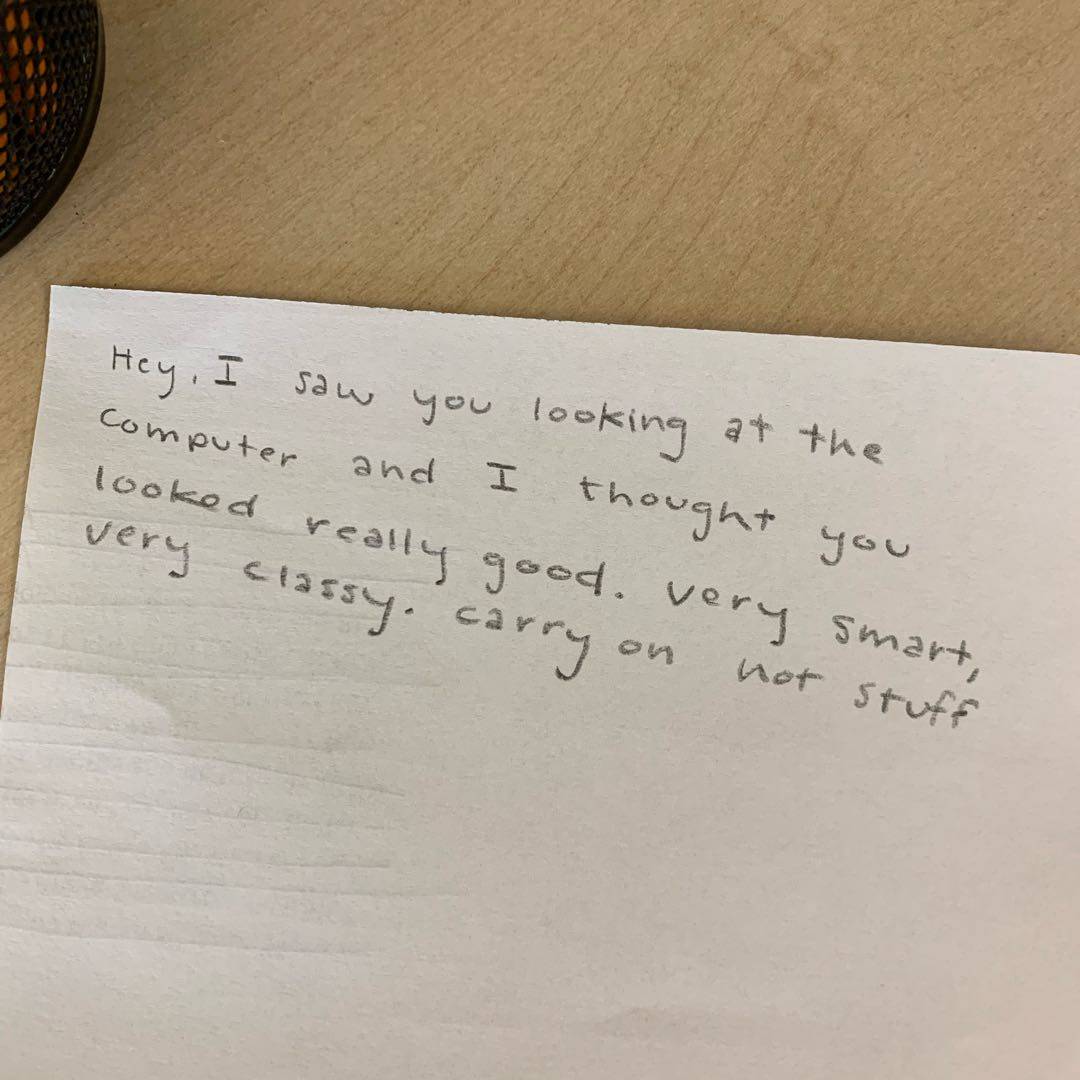 Hey, I saw you looking at the
computer and I thought you
looked really good. very smart,
very classy. carry on hot stuff